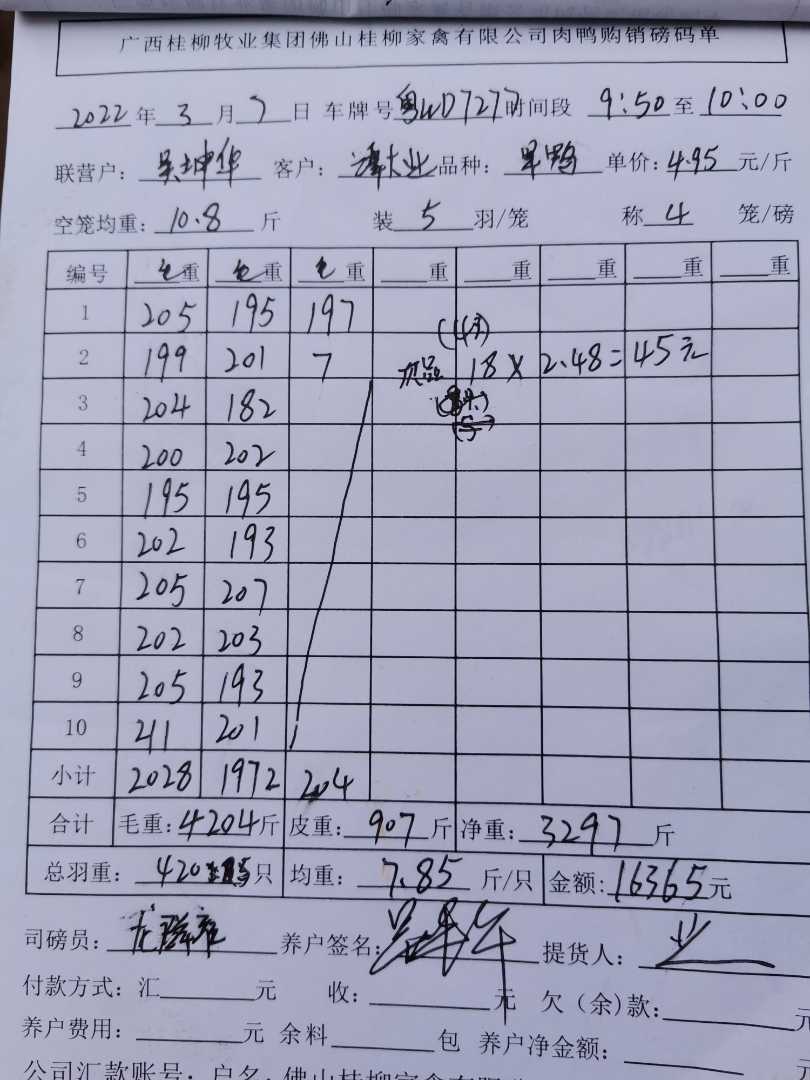 广西桂柳牧业集团佛山桂柳家禽有限公司肉鸭购销磅码单
2022年3月7日 车牌号粤WD7277时间段 9:50至10:00
联营户：吴坤华 客户：大业品种：旱鸭 单价：4.95元/斤
空笼均重：10.8斤 装5羽/笼 称4笼/磅
编号 毛重 毛重 毛重 重 重 重 重 重
1 205 195 197
2 199 201 7 次品 18 × 2.48 = 45元
3 204 182
4 200 202
5 195 195
6 202 193
7 205 207
8 202 203
9 205 193
10 211 201
小计 2028 1972 204
合计 毛重：4204斤 皮重：907斤 净重：3297斤
总羽重：420只 均重：7.85斤/只 金额：16365元
司磅员： 养户签名： 提货人：
付款方式：汇 元 收： 元 欠（余）款： 元
养户费用： 元 余料 包 养户净金额：
公司汇款账号：户名：佛山桂柳家禽有限